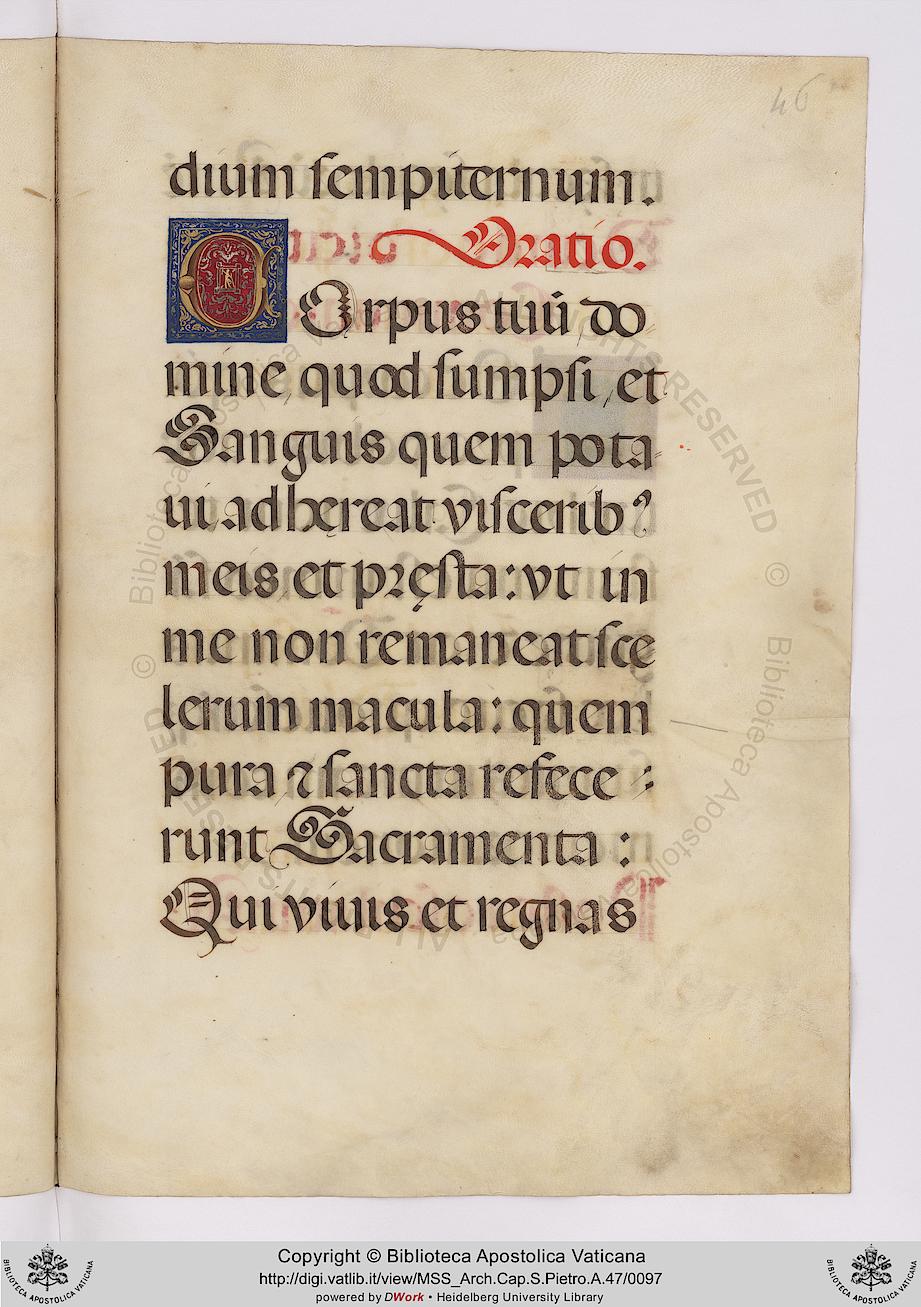 46
dium sempiternum.
Oratio.
COrpus tuū do
mine quod sumpsi, et
Sanguis quem pota
ui, adhęreat visceribꝰ
meis, et pręsta: vt in
me non remaneat sce
lerum macula: quem
pura ⁊ sancta refece
runt Sacramenta:
Qui viuis et regnas
© Biblioteca Apostolica Vaticana
ALL RIGHTS RESERVED
BIBLIOTECA APOSTOLICA VATICANA
Copyright © Biblioteca Apostolica Vaticana
http://digi.vatlib.it/view/MSS_Arch.Cap.S.Pietro.A.47/0097
powered by DWork • Heidelberg University Library
BIBLIOTECA APOSTOLICA VATICANA